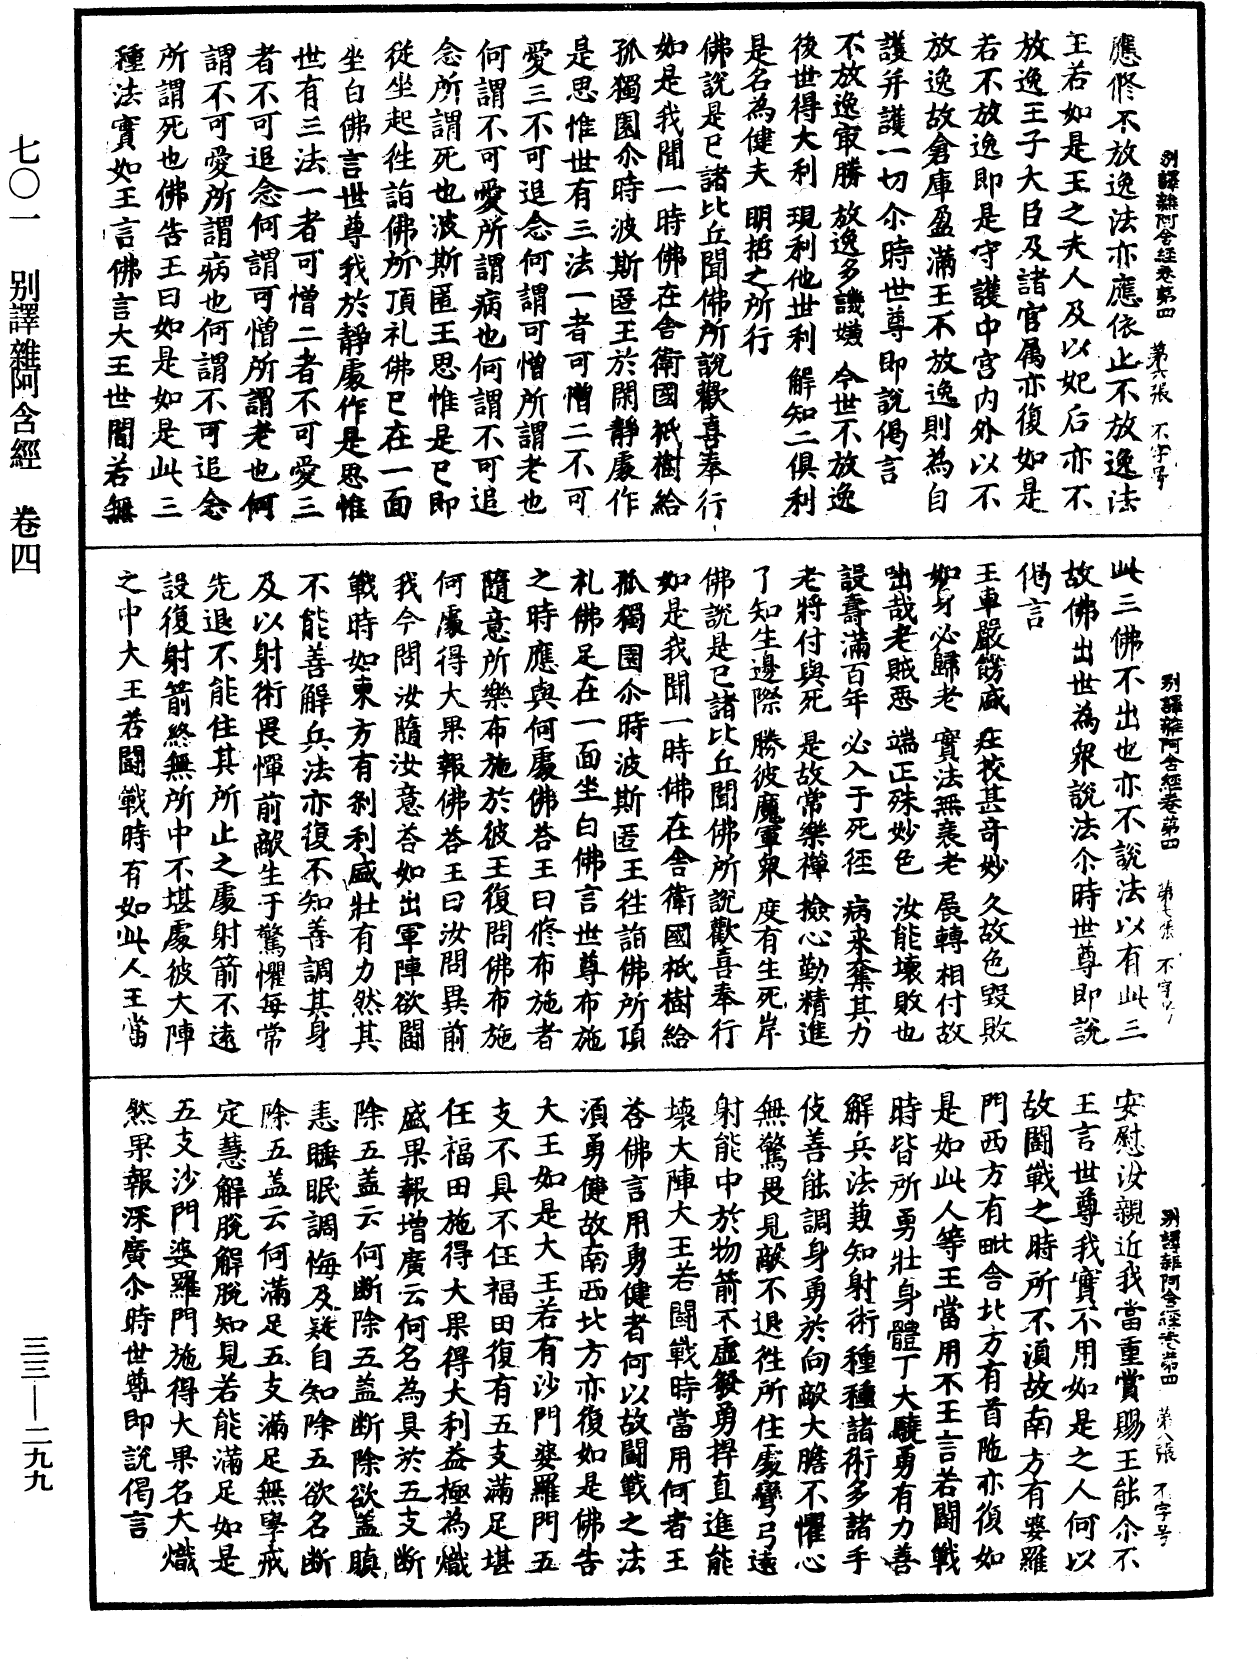 七〇一　别譯雜阿含經　卷四
三三—二九九
别譯雜阿含經卷第四　第六張　不字号
應修不放逸法亦應依止不放逸法
王若如是王之夫人及以妃后亦不
放逸王子大臣及諸官属亦復如是
若不放逸即是守護中宫内外以不
放逸故倉庫盈滿王不放逸則為自
護并護一切尒時世尊即說偈言
不放逸㝡勝　放逸多譏嫌　今世不放逸
後世得大利　現利他世利　解知二俱利
是名為健夫　明哲之所行
佛說是已諸比丘聞佛所說歡喜奉行
如是我聞一時佛在舎衛國祇樹給
孤獨園尒時波斯匿王於閑靜處作
是思惟世有三法一者可憎二不可
愛三不可追念何謂可憎所謂老也
何謂不可愛所謂病也何謂不可追
念所謂死也波斯匿王思惟是已即
從坐起往詣佛所頂礼佛已在一面
坐白佛言世尊我於靜處作是思惟
世有三法一者可憎二者不可愛三
者不可追念何謂可憎所謂老也何
謂不可愛所謂病也何謂不可追念
所謂死也佛告王曰如是如是此三
種法實如王言佛言大王世閒若無
别譯雜阿含經卷第四　第七張　不字号
此三佛不出也亦不說法以有此三
故佛出世為衆說法尒時世尊即說
偈言
王車嚴餝盛　莊挍甚奇妙　久故色毀敗
如身必歸老　實法無衰老　展轉相付故
咄哉老賊惡　端正殊妙色　汝能壞敗也
設壽滿百年　必入于死徑　病來奪其力
老將付與死　是故常樂禪　撿心勤精進
了知生邊際　勝彼魔軍衆　度有生死岸
佛說是已諸比丘聞佛所說歡喜奉行
如是我聞一時佛在舎衛國祇樹給
孤獨園尒時波斯匿王往詣佛所頂
礼佛足在一面坐白佛言世尊布施
之時應與何處佛荅王曰修布施者
隨意所樂布施於彼王復問佛布施
何處得大果報佛荅王曰汝問異前
我今問汝隨汝意荅如出軍陣欲鬪
戰時如東方有刹利盛壯有力然其
不能善解兵法亦復不知善調其身
及以射術畏憚前敵生于驚懼每常
先退不能住其所止之處射箭不遠
設復射箭終無所中不堪處彼大陣
之中大王若鬪戰時有如此人王當
别譯雜阿含經卷第四　第八張　不字号
安慰汝親近我當重賞賜王能尒不
王言世尊我實不用如是之人何以
故鬪戰之時所不湏故南方有婆羅
門西方有毗舎北方有首陁亦復如
是如此人等王當用不王言若鬪戰
時皆所勇壯身體丁大驍勇有力善
解兵法兼知射術種種諸術多諸手
伎善能調身勇於向敵大膽不懼心
無驚畏見敵不退往所住處彎弓遠
射能中於物箭不虚發勇捍直進能
壞大陣大王若鬪戰時當用何者王
荅佛言用勇健者何以故鬪戰之法
湏勇健故南西北方亦復如是佛告
大王如是大王若有沙門婆羅門五
支不具不任福田復有五支滿足堪
任福田施得大果得大利益極為熾
盛果報增廣云何名為具於五支断
除五盖云何断除五盖断除欲盖瞋
恚睡眠調悔及疑自知除五欲名断
除五盖云何滿足五支滿足無學戒
定慧解脫解脫知見若能滿足如是
五支沙門婆羅門施得大果名大熾
然果報深廣尒時世尊即說偈言